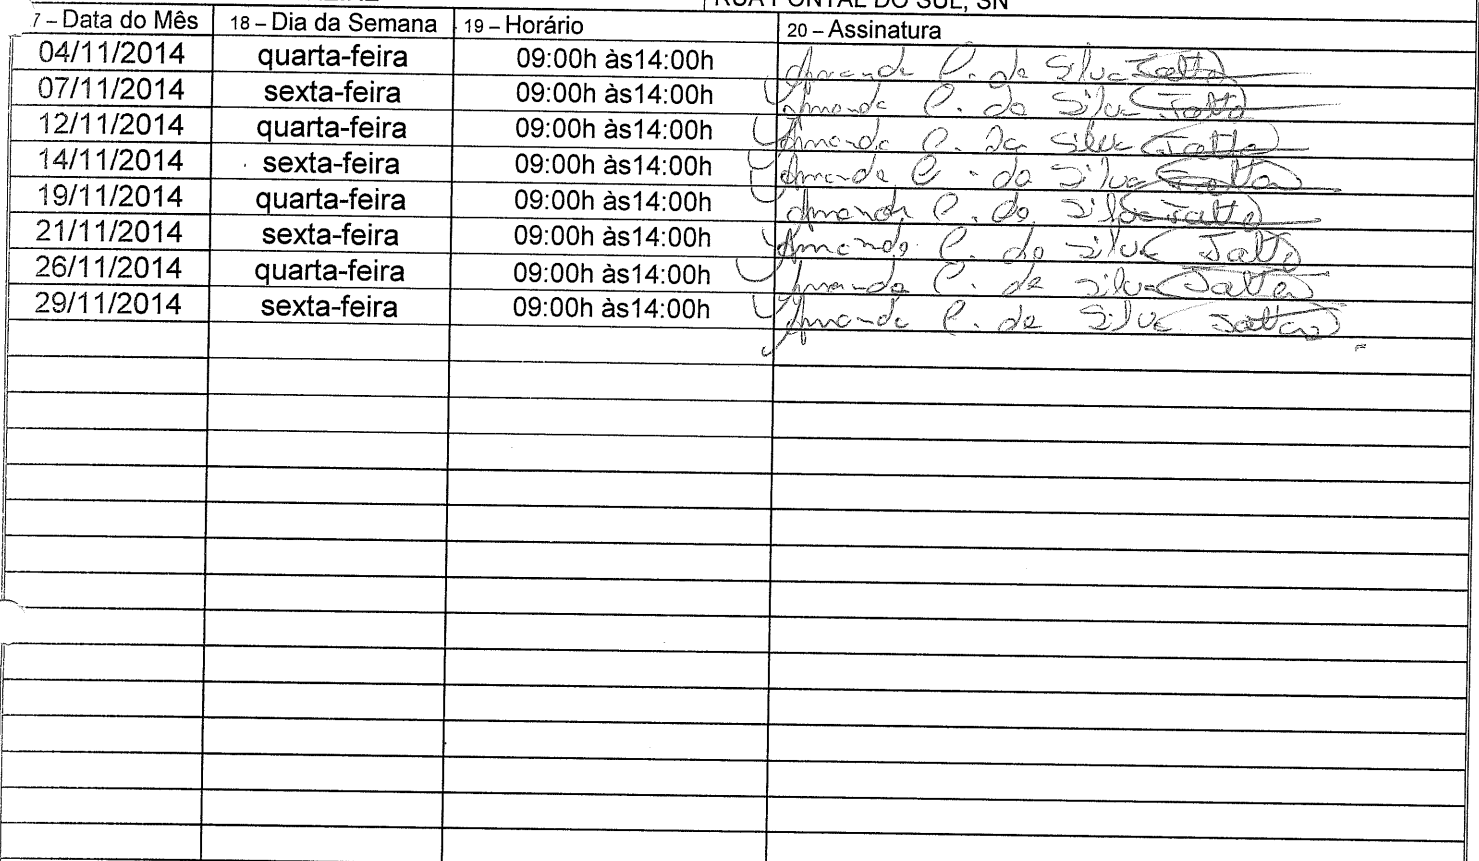 RUA PONTAL DO SUL, SN
7 – Data do Mês 18 – Dia da Semana 19 – Horário 20 – Assinatura
04/11/2014 quarta-feira 09:00h às14:00h Amanda C. da Silva
07/11/2014 sexta-feira 09:00h às14:00h Amanda C. da Silva
12/11/2014 quarta-feira 09:00h às14:00h Amanda C. da Silva
14/11/2014 sexta-feira 09:00h às14:00h Amanda C. da Silva
19/11/2014 quarta-feira 09:00h às14:00h Amanda C. da Silva
21/11/2014 sexta-feira 09:00h às14:00h Amanda C. da Silva
26/11/2014 quarta-feira 09:00h às14:00h Amanda C. da Silva
29/11/2014 sexta-feira 09:00h às14:00h Amanda C. da Silva